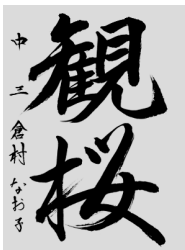 観桜
中三 倉村 なお子